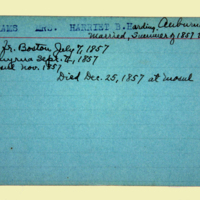 AMS MRS. HARRIET B. Harding, Auburn
Married, Summer of 1857
fr. Boston, July 7, 1857
myrna Sept. 1857
Nov. 1857
Died Dec. 25, 1857 at Mosul